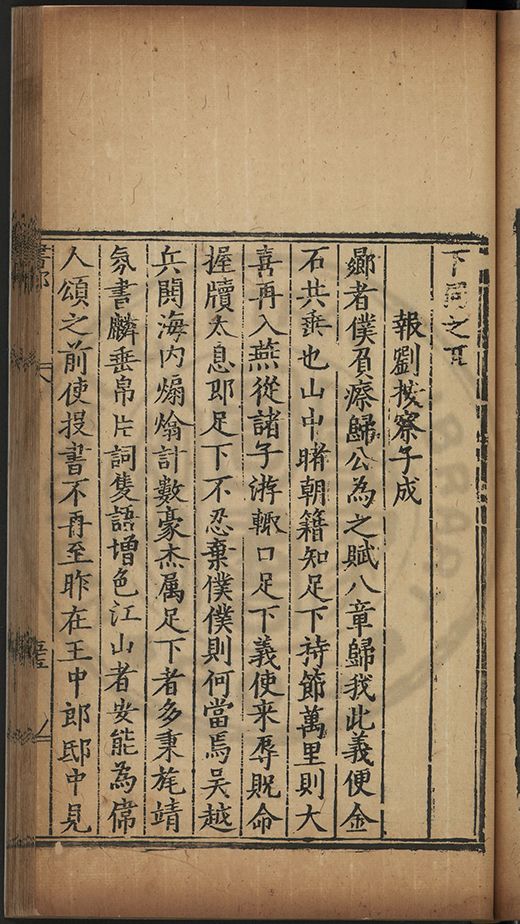 下同之耳
報劉按察子成
鄉者僕負瘵歸公為之賦八章歸我此義便金
石共垂也山中睹朝籍知足下持節萬里則大
喜再入燕從諸子游輙口足下義使来辱貺命
握牘太息即足下不忍棄僕僕則何當焉吴越
兵閧海内煽熻計數豪杰属足下者多秉旄靖
氛書麟垂帛片詞隻語增色江山者安能為儔
人頌之前使投書不再至昨在王中郎邸中見